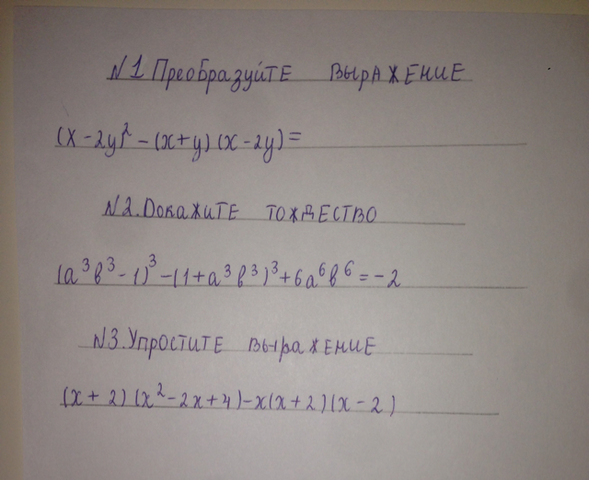 N1 Преобразуйте выражение
(x-2y)² - (x+y)(x-2y)=
N2. Докажите тождество
(a³b³-1)³-(1+a³b³)³+6a⁶b⁶=-2
N3. Упростите выражение
(x+2)(x²-2x+4)-x(x+2)(x-2)